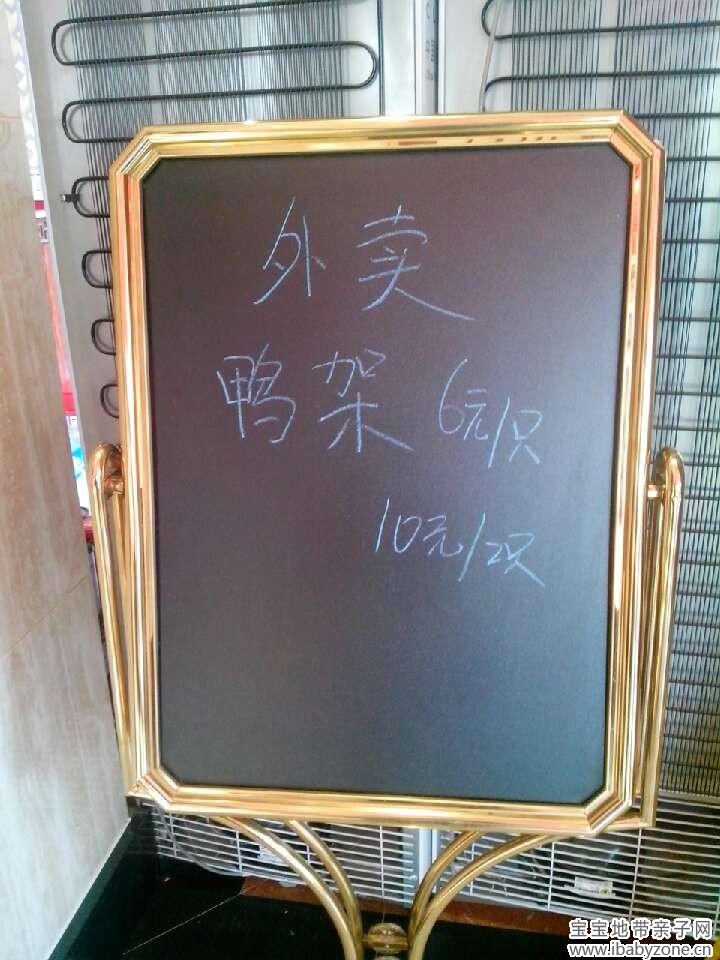 外卖
鸭架 6元/只
10元/2只
宝宝地带亲子网
www.ibabyzone.cn